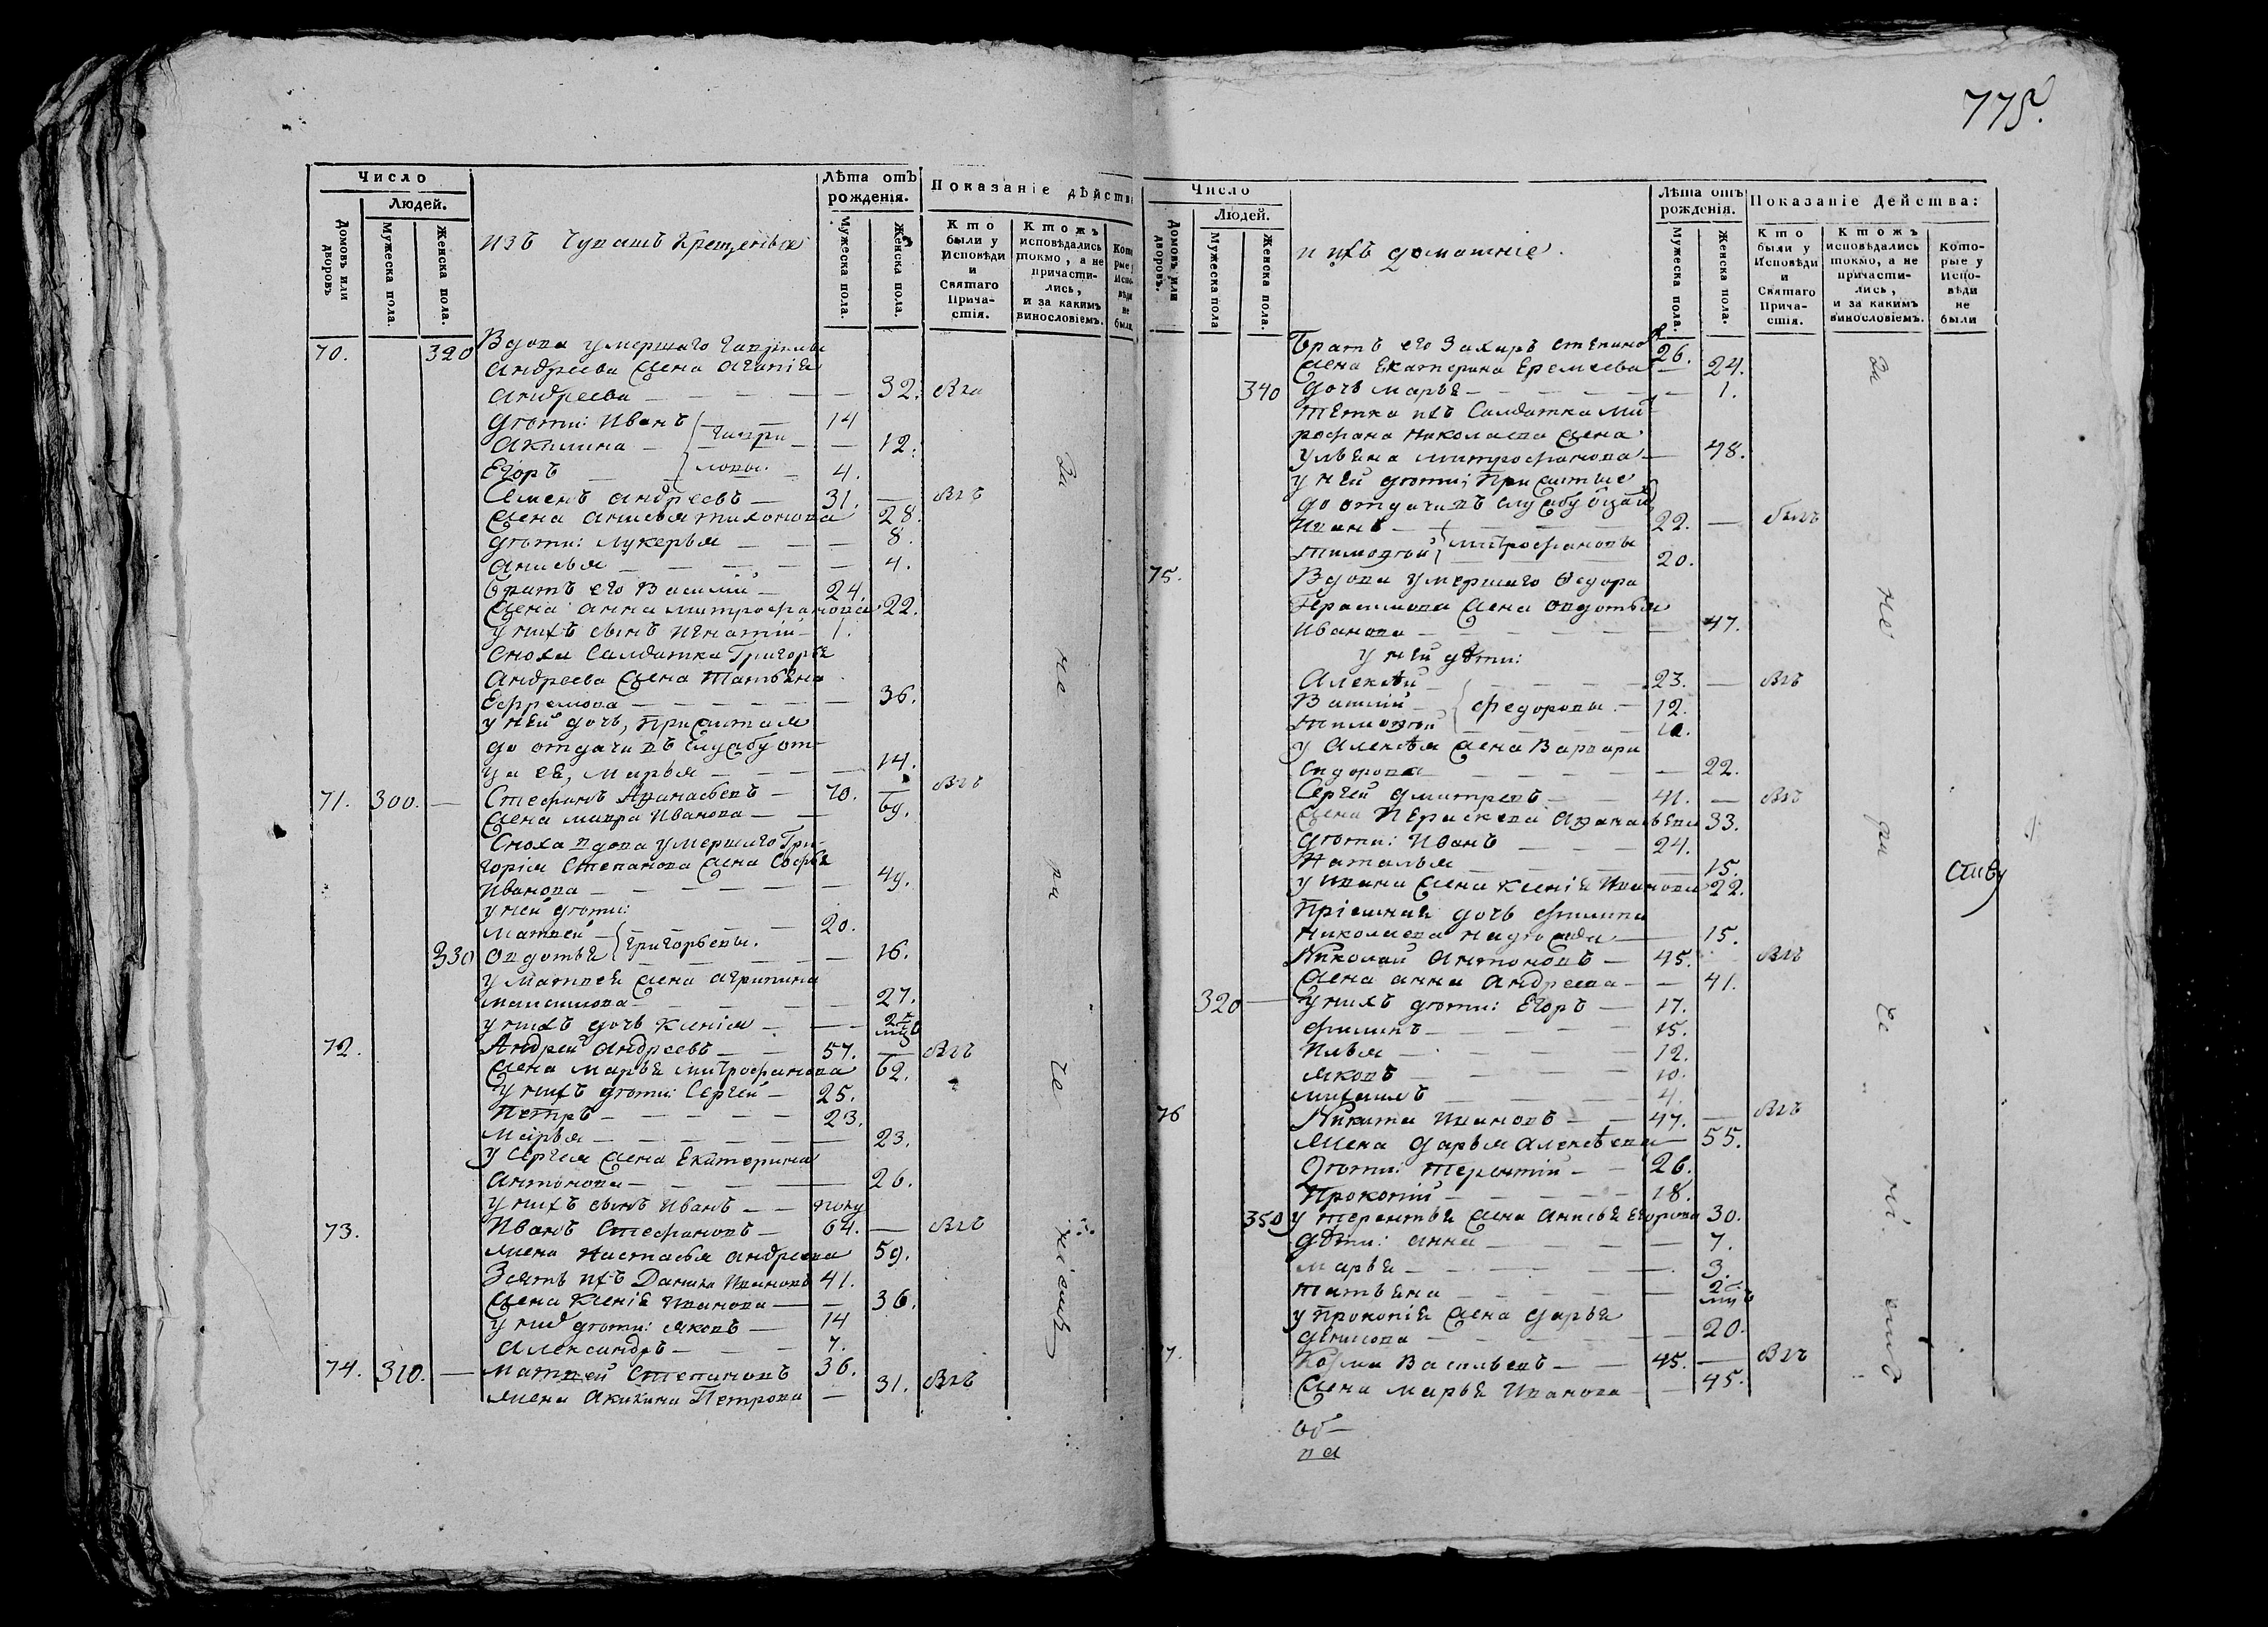 775.
Число
Людей.
Домовъ или дворовъ
Мужеска пола.
Женска пола.
изъ Чувашъ Крещеныя
Лѣта отъ рожденія.
Мужеска пола.
Женска пола.
Показаніе дѣйств
Кто были у Исповѣди и Святаго Причастія.
Ктожъ исповѣдались токмо, а не причастились, и за какимъ винословіемъ.
70. 320 Вдова умершаго Гаврилы
Андреева жена Агапія
Андреева — 32. Была
дѣти: Иванъ — 14
Акилина — Гаври- — 12.
Егоръ — ловы. 4.
Семенъ Андреевъ — 31. — Былъ
жена Анисья Тихонова 28.
дѣти: Лукерья — 8.
Анисья — 4.
братъ его Василій — 24.
жена Анна Митрофанова 22.
у нихъ сынъ Игнатій — 1.
Сноха Салдатка Григорья
Андреева жена Татьяна
Ефремова — 36.
у ней дочь, прижитая
до отдачи въ службу от-
ца ея, Марья — 14.
71. 300. — Стефанъ Афанасьевъ — 70. — Былъ
жена Мавра Иванова — 69.
Сноха вдова умершаго Гри-
горія Степанова жена Софья
Иванова — 49.
у ней дѣти:
Матвей — 20.
330 Овдотья Григорьевы. — 16.
у Матвея жена Агрипина
Максимова — 27.
у нихъ дочь Ксенія — 2х мцъ
72. Андрей Андреевъ — 57. — Былъ
жена Марья Митрофанова 62.
у нихъ дѣти: Сергей — 25.
Петръ — 23.
Марья — 23.
у Сергея жена Екатерина
Антонова — 26.
у нихъ сынъ Иванъ — полу
73. Иванъ Стефановъ — 64. — Былъ
жена Настасья Андреева 59.
Зять ихъ Данила Ивановъ 41.
жена Ксенія Иванова — 36.
у нихъ дѣти: Яковъ — 14
Александръ — 7.
74. 310. — Матвей Степановъ 36. Былъ
жена Акилина Петрова — 31.
За не ра че ніемъ
Число
Людей.
Домовъ или дворовъ.
Мужеска пола
Женска пола.
и ихъ домашніе.
Лѣта отъ рожденія.
Мужеска пола.
Женска пола.
Показаніе Действа:
Кто были у Исповѣди и Святаго Причастія.
Ктожъ исповѣдались токмо, а не причастились, и за какимъ винословіемъ.
Которые у Исповѣди не были
Братъ его Захаръ Степановъ 26.
жена Екатерина Еремеева — 24.
340 дочь Марья — 1.
тетка ихъ Салдатка Мит-
рофана Николаева жена
Ульяна Митрофанова — 48.
у ней дѣти; прижитые
до отдачи въ службу отца
Иванъ — 22. — былъ
Тимофей Митрофановы 20.
75. Вдова умершаго Федора
Герасимова жена Овдотья
Иванова — 47.
у ней дѣти:
Алексѣй — 23. — Былъ
Василій — Федоровы. — 12.
Тимофей — 10.
у Алексѣя жена Варвара
Сидорова — 22.
Сергей Дмитревъ — 41. — Былъ
жена Параскева Афанасьева 33.
дѣти: Иванъ — 24.
Наталья — 15.
у Ивана жена Ксенія Иванова 22.
Пріемная дочь Филипа
Николаева Надежда — 15.
Николай Антоновъ — 45. Былъ
жена Анна Андреева — 41.
320 — у нихъ дѣти: Егоръ — 17.
Филипъ — 15.
Илья — 12.
Яковъ — 10.
Михаилъ — 4.
76 Никита Ивановъ — 47. — Былъ
жена Дарья Алексѣева — 55.
дѣти: Терентій — 26.
Прокопій — 18.
350 у Терентья жена Анисья Егорова 30.
дѣти: Анна — 7.
Марья — 3.
Татьяна — 2 мцъ
у Прокопія жена Дарья
Денисова — 20.
7. Козма Васильевъ — 45. — Былъ
жена Марья Иванова — 45.
За не ра че ні емъ